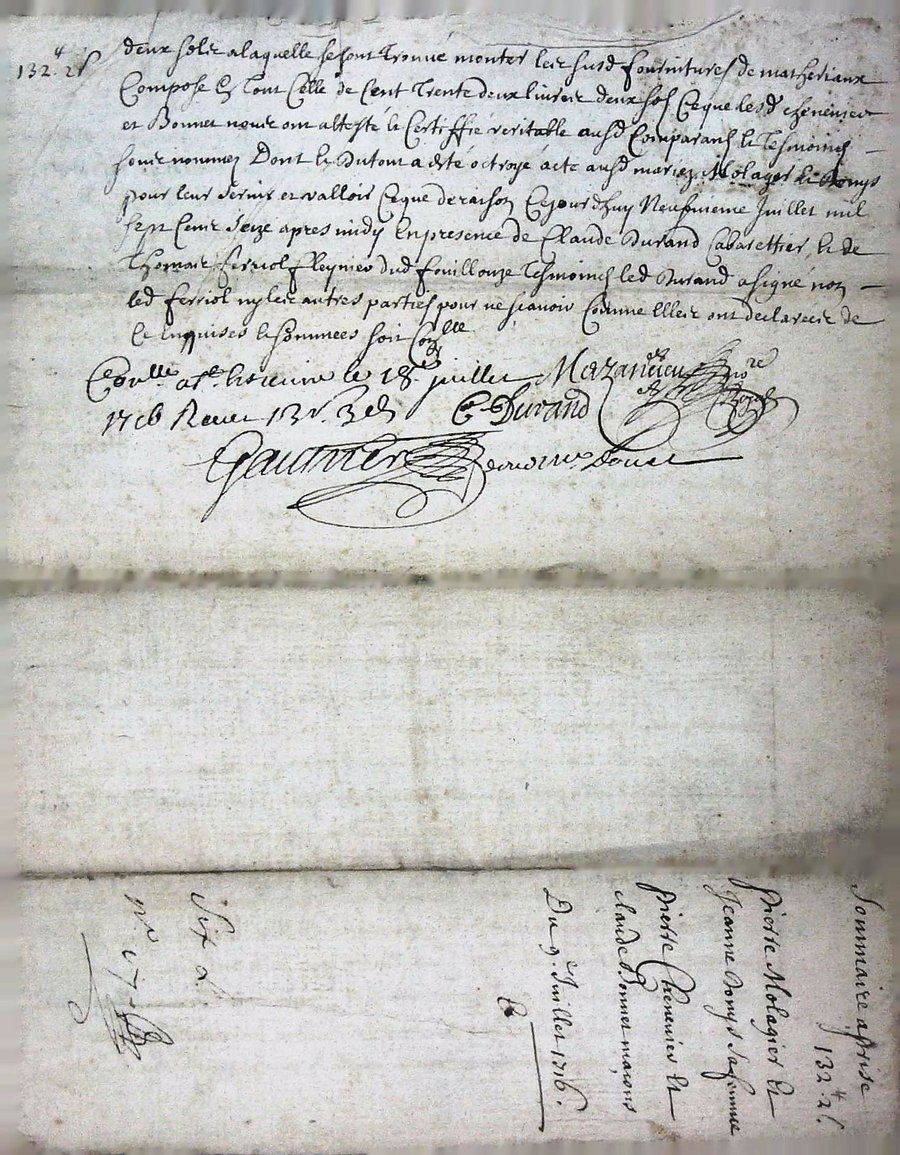 132.ᵗᵗ 2ˢ
deux solz a laquelle se sont trouvé monter leur susd fournitures de matheriaux
Compose En tout Celle de Cent Trente deux livres deux sols Ce que lesd cheneuier
et Bonnet nous ont attesté & Certiffié veritable ausd Comparans & Tesmoins
sous nommez Dont & Du tout a esté octroyé acte ausd mariez Molager & Bonys
pour leur servir et valloir Ce que de raison Cejourdhuy Neufvieme Juillet mil
sept Cens seize apres midy En presence de Claude Durand Cabarettier, & de
Thomas ferriol dud fouillouze Tesmoins led Durand a signé non
led ferriol ny les autres parties pour ne scavoir Comme Elles ont declare de
Ce Enquises & sommees soit Conlle
Conlle a St Estienne le 18.ᵉ juillet Mazandieu noʳᵉ
1716 Receu 13ˢ 3d C Durand Royal
Gauthier
Sommaire aprise
132ᵗᵗ 2ˢ
pierre Molagier Et
Jeanne Bonys sa femme
pierre Cheneuier Et
claude Bonnet maçons
Du 9.ᵉ Juillet 1716.
Six L.
nº 17